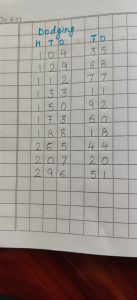 Dodging
H T O T O
1 0 4 3 5
1 2 9 6 8
1 1 2 7 7
1 3 3 1 1
1 5 0 9 2
1 7 3 6 0
1 8 8 1 8
2 6 5 4 4
2 0 7 2 0
2 9 6 5 1